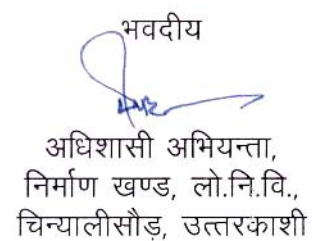 भवदीय
अधिशासी अभियन्ता,
निर्माण खण्ड, लो.नि.वि.,
चिन्यालीसौड़, उत्तरकाशी